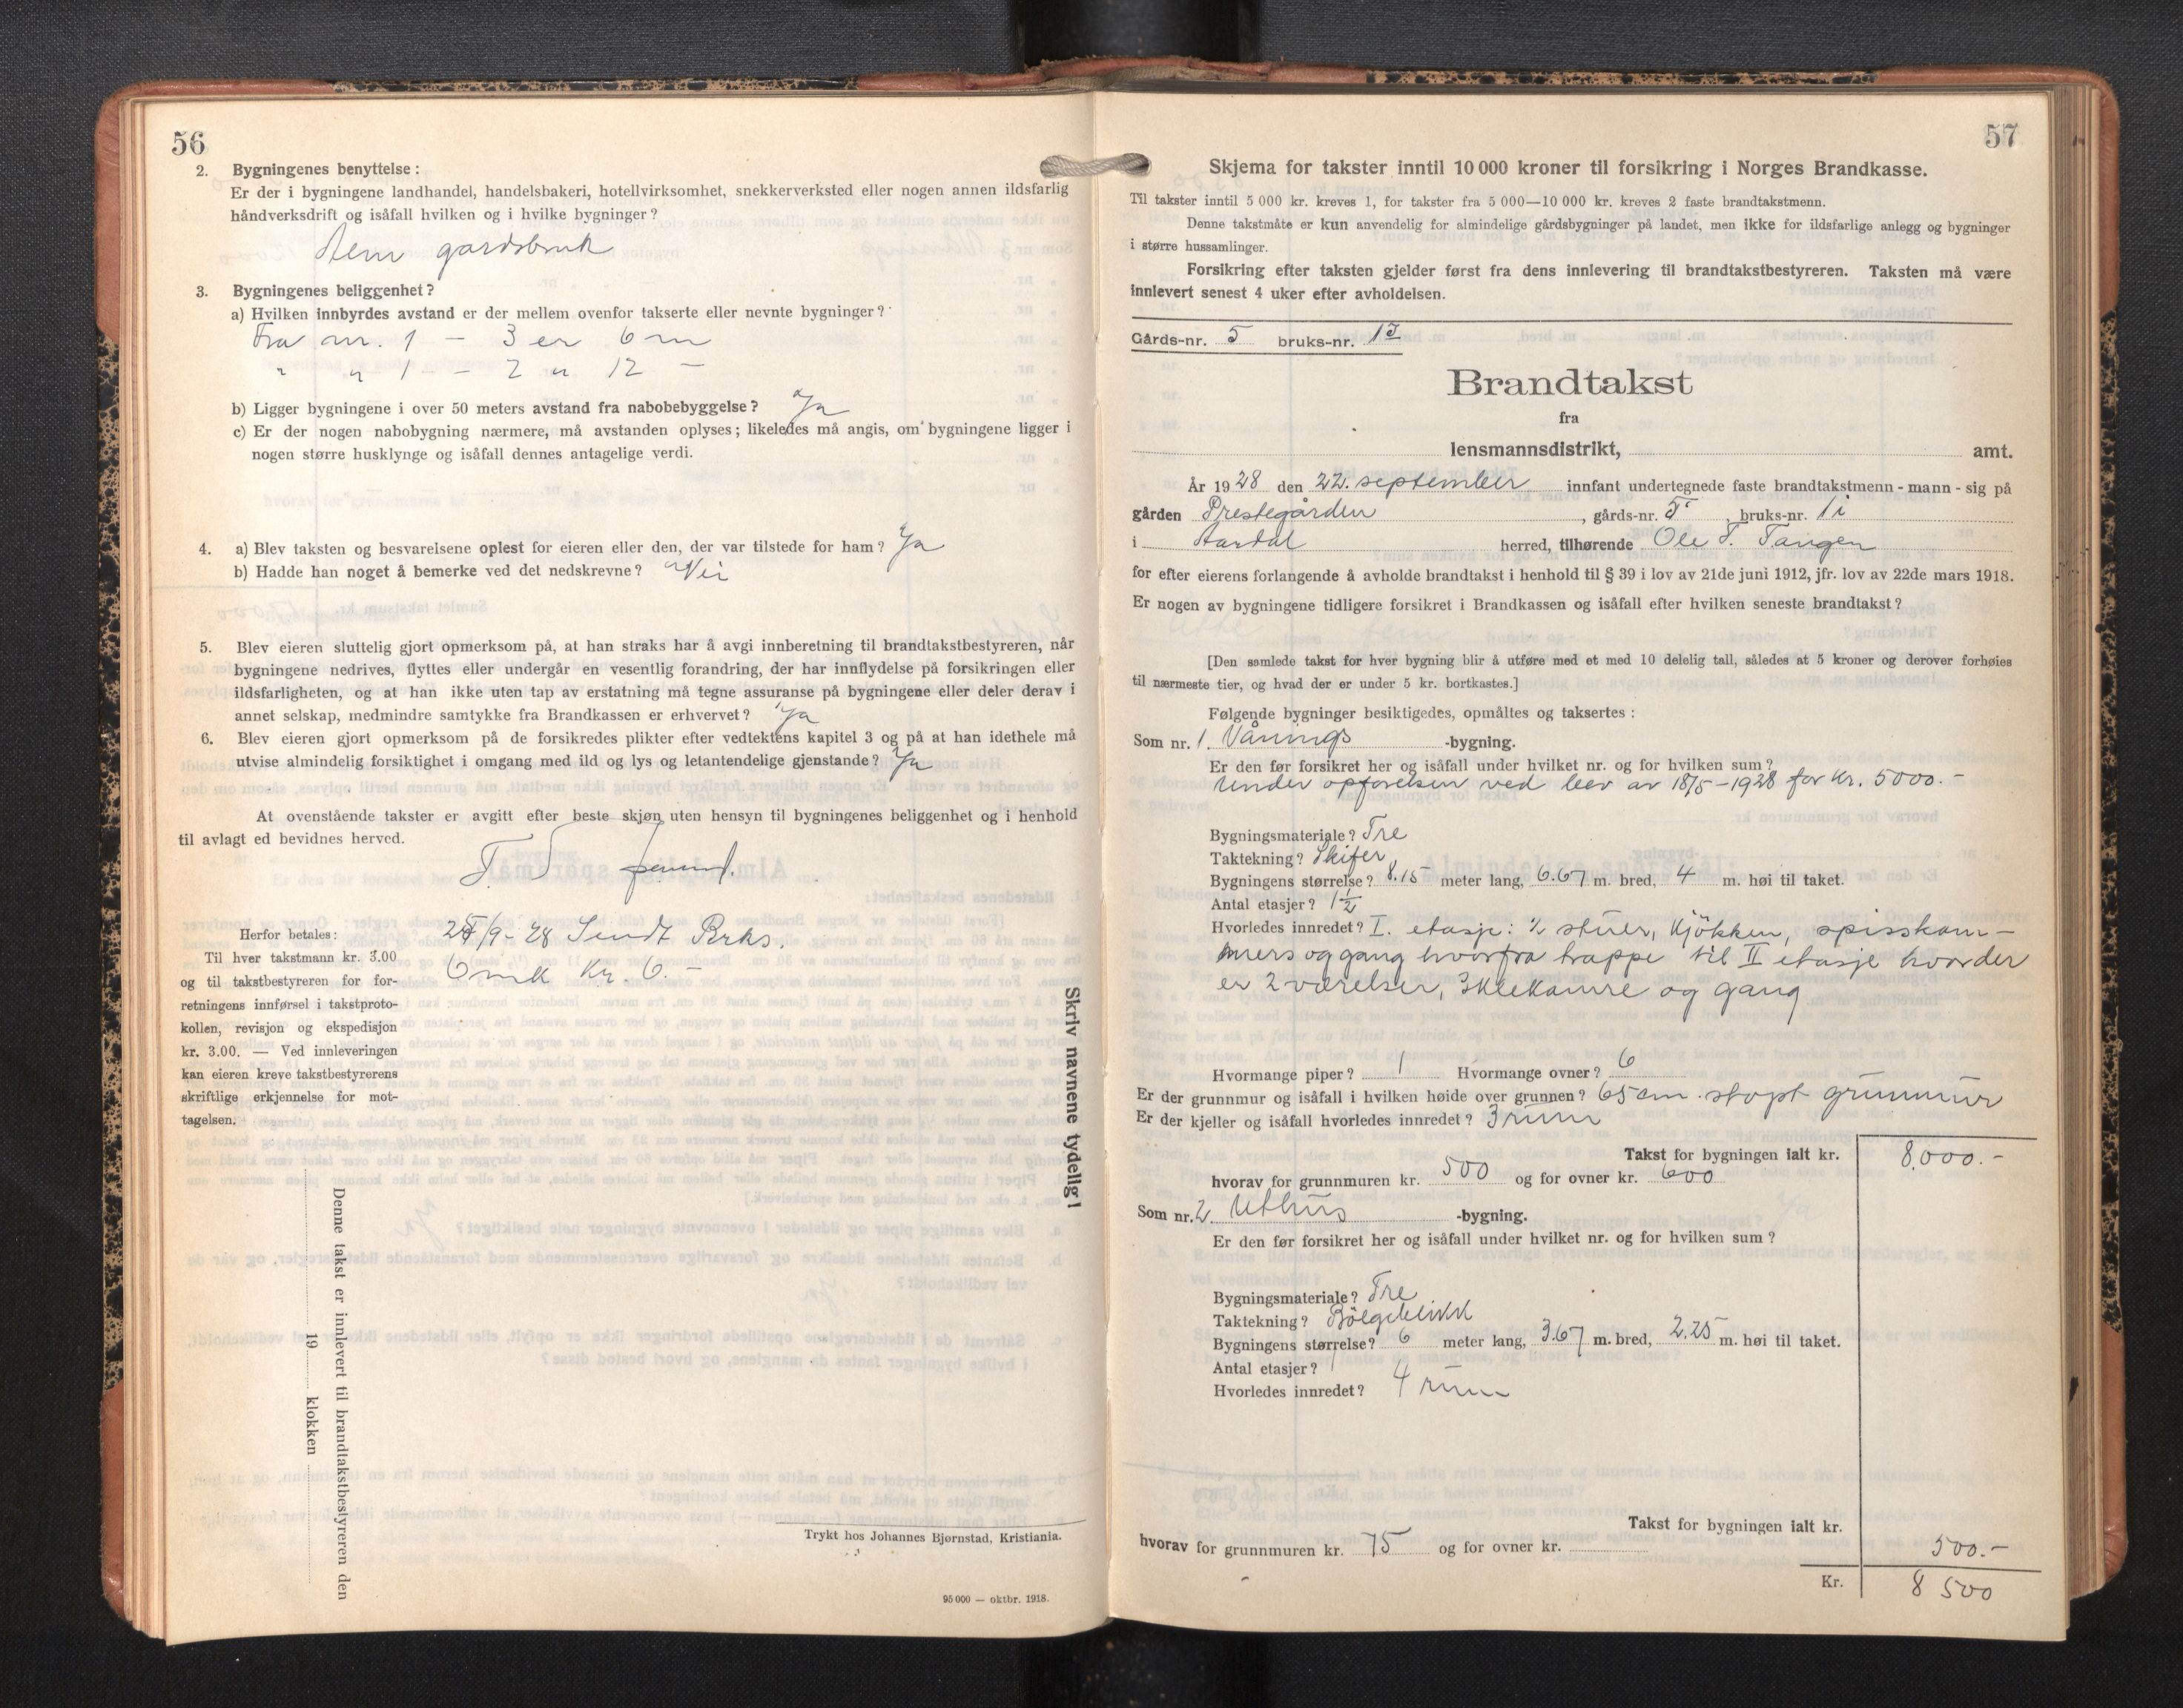 56
2. Bygningenes benyttelse:
Er der i bygningene landhandel, handelsbakeri, hotellvirksomhet, snekkerverksted eller nogen annen ildsfarlig
håndverksdrift og isåfall hvilken og i hvilke bygninger?
gardsbruk
3. Bygningenes beliggenhet?
a) Hvilken innbyrdes avstand er der mellem ovenfor takserte eller nevnte bygninger?
Fra nr. 1 - 3 er 6 m
" " 1 - 2 " 12 -
b) Ligger bygningene i over 50 meters avstand fra nabobebyggelse? Ja
c) Er der nogen nabobygning nærmere, må avstanden oplyses; likeledes må angis, om bygningene ligger i
nogen større husklynge og isåfall dennes antagelige verdi.
4. a) Blev taksten og besvarelsene oplest for eieren eller den, der var tilstede for ham? Ja
b) Hadde han noget å bemerke ved det nedskrevne? Nei
5. Blev eieren sluttelig gjort opmerksom på, at han straks har å avgi innberetning til brandtakstbestyreren, når
bygningene nedrives, flyttes eller undergår en vesentlig forandring, der har innflydelse på forsikringen eller
ildsfarligheten, og at han ikke uten tap av erstatning må tegne assuranse på bygningene eller deler derav i
annet selskap, medmindre samtykke fra Brandkassen er erhvervet? Ja
6. Blev eieren gjort opmerksom på de forsikredes plikter efter vedtektens kapitel 3 og på at han idethele må
utvise almindelig forsiktighet i omgang med ild og lys og letantendelige gjenstande? Ja
At ovenstående takster er avgitt efter beste skjøn uten hensyn til bygningenes beliggenhet og i henhold
til avlagt ed bevidnes herved.
Herfor betales:
Til hver takstmann kr. 3.00
og til takstbestyreren for for-
retningens innførsel i takstproto-
kollen, revisjon og ekspedisjon
kr. 3.00. — Ved innleveringen
kan eieren kreve takstbestyrerens
skriftlige erkjennelse for mot-
tagelsen.
/9 - 28 Sendt
kr. 6.-
Skriv navnene tydelig!
Denne takst er innlevert til brandtakstbestyreren den
19 klokken
Trykt hos Johannes Bjørnstad, Kristiania.
95 000 — oktbr. 1918.
57
Skjema for takster inntil 10 000 kroner til forsikring i Norges Brandkasse.
Til takster inntil 5 000 kr. kreves 1, for takster fra 5 000—10 000 kr. kreves 2 faste brandtakstmenn.
Denne takstmåte er kun anvendelig for almindelige gårdsbygninger på landet, men ikke for ildsfarlige anlegg og bygninger
i større hussamlinger.
Forsikring efter taksten gjelder først fra dens innlevering til brandtakstbestyreren. Taksten må være
innlevert senest 4 uker efter avholdelsen.
Gårds-nr. 5 bruks-nr.
Brandtakst
fra
lensmannsdistrikt, amt.
År 1928 den 22. september innfant undertegnede faste brandtakstmenn - mann - sig på
gården Prestegården, gårds-nr. 5, bruks-nr. 1 i
i Aardal herred, tilhørende Ole T. Tangen
for efter eierens forlangende å avholde brandtakst i henhold til § 39 i lov av 21de juni 1912, jfr. lov av 22de mars 1918.
Er nogen av bygningene tidligere forsikret i Brandkassen og isåfall efter hvilken seneste brandtakst?
[Den samlede takst for hver bygning blir å utføre med et med 10 delelig tall, således at 5 kroner og derover forhøies
til nærmeste tier, og hvad der er under 5 kr. bortkastes.]
Følgende bygninger besiktigedes, opmåltes og taksertes:
Som nr. 1. Vånings -bygning.
Er den før forsikret her og isåfall under hvilket nr. og for hvilken sum?
Under opførelsen ved brev av 18/5 - 1928 for kr. 5000.-
Bygningsmateriale? Tre
Taktekning? Skifer
Bygningens størrelse? 8.15 meter lang, 6.67 m. bred, 4 m. høi til taket.
Antal etasjer? 1½
Hvorledes innredet? I. etasje: ½ stuer, kjökken, spisskam-
mers og gang hvorfra trappe til II etasje hvor der
er 2 værelser, 3 klekamre og gang
Hvormange piper? 1 Hvormange ovner? 6
Er der grunnmur og isåfall i hvilken høide over grunnen? 65 cm. støpt grunmur
Er der kjeller og isåfall hvorledes innredet? 3 rum
Takst for bygningen ialt kr. 8.000.-
hvorav for grunnmuren kr. 500 og for ovner kr. 600
Som nr. 2 Uthus -bygning.
Er den før forsikret her og isåfall under hvilket nr. og for hvilken sum?
Bygningsmateriale? Tre
Taktekning? Bölgeblikk
Bygningens størrelse? 6 meter lang, 3.67 m. bred, 2.25 m. høi til taket.
Antal etasjer? 1
Hvorledes innredet? 4 rum
Takst for bygningen ialt kr.
hvorav for grunnmuren kr. 75 og for ovner kr. 500.-
Kr. 8 500